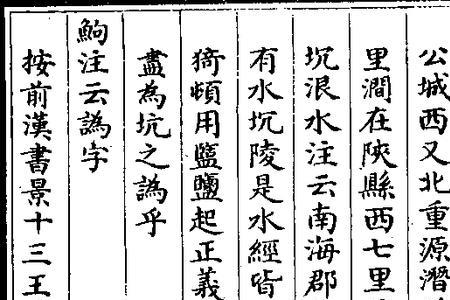 公城西又北重源潛
里澗在陜縣西七里
沉浪水注云南海郡
有水沉陵是水經皆
猗頓用盬鹽起正義
盡為坑之譌乎
鮈注云譌字
按前漢書景十三王